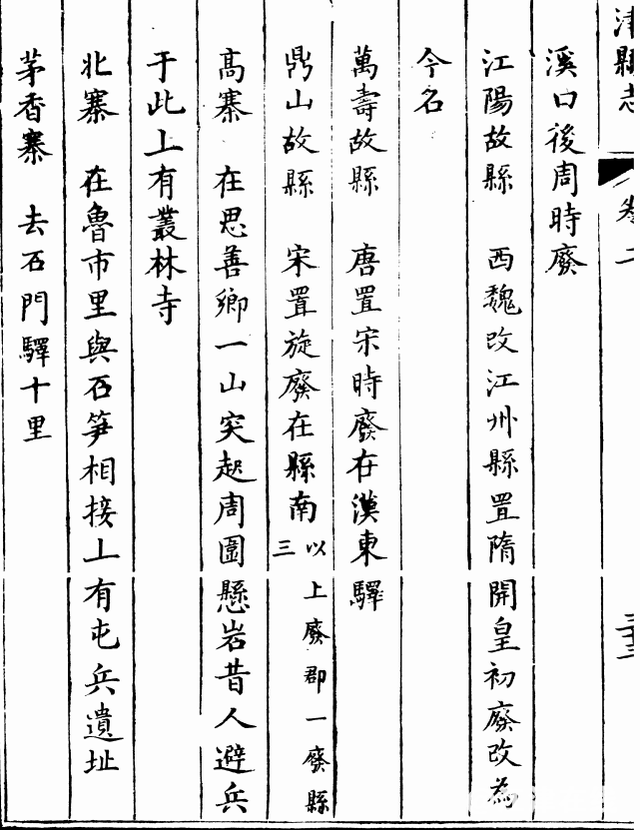 津縣志
卷二
三十三
溪口後周時廢
江陽故縣　西魏改江州縣置隋開皇初廢改為
今名
萬壽故縣　唐置宋時廢在漢東驛
鼎山故縣　宋置旋廢在縣南以上廢郡一廢縣
三
高寨　在思善鄉一山突起周圍懸岩昔人避兵
于此上有叢林寺
北寨　在魯市里與石笋相接上有屯兵遺址
茅香寨　去石門驛十里